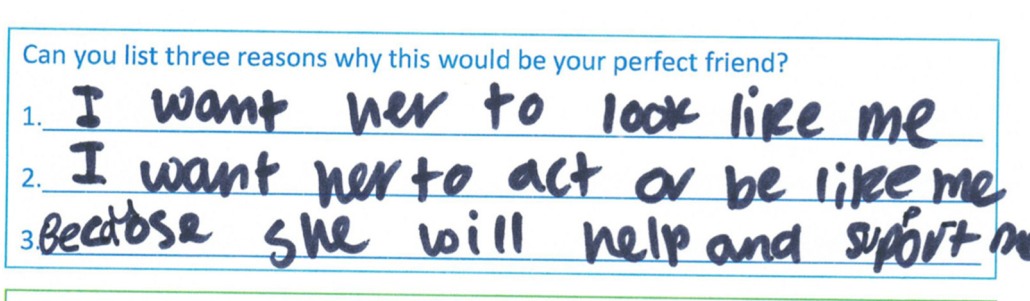 Can you list three reasons why this would be your perfect friend?
1. I want her to look like me
2. I want her to act or be like me
3. Becaose she will help and support me